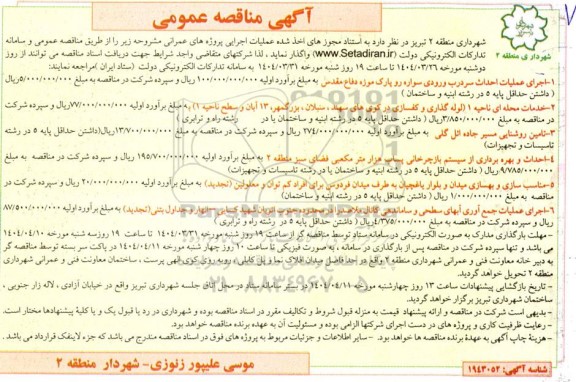 آگهی مناقصه عمومی
شهرداری منطقه ۲
شهرداری منطقه ۲ تبریز در نظر دارد به استناد مجوز های اخذ شده عملیات اجرایی پروژه های عمرانی مشروحه زیر را از طریق مناقصه عمومی و سامانه
تدارکات الکترونیکی دولت (www.Setadiran.ir) واگذار نماید ، لذا شرکتهای متقاضی واجد شرایط جهت دریافت اسناد مناقصه می توانند از روز
دوشنبه مورخه ۱۴۰۴/۰۳/۲۶ تا ساعت ۱۹ روز شنبه مورخه ۱۴۰۴/۰۳/۳۱ به سامانه تدارکات الکترونیکی دولت (ستاد ایران) مراجعه نمایند:
۱-اجرای عملیات احداث سردرب ورودی سواره رو پارک موزه دفاع مقدس به مبلغ برآورد اولیه ۱۰۰/۰۰۰/۰۰۰/۰۰۰ ریال و سپرده شرکت در مناقصه به مبلغ ۵/۰۰۰/۰۰۰/۰۰۰ریال
( داشتن حداقل پایه ۵ در رشته ابنیه و ساختمان)
۲-خدمات محله ای ناحیه ۱ (لوله گذاری و کفسازی در کوی های سهند ، سبلان ، بزرگمهر، ۱۳ آبان و سطح ناحیه ۱) به مبلغ برآورد اولیه ۷۷/۰۰۰/۰۰۰/۰۰۰ریال و سپرده شرکت
در مناقصه به مبلغ ۳/۸۵۰/۰۰۰/۰۰۰ریال ( داشتن حداقل پایه ۵ در رشته ابنیه و ساختمان یا در رشته راه و ترابری )
۳-تامین روشنایی مسیر جاده ائل گلی به مبلغ برآورد اولیه ۲۷۴/۰۰۰/۰۰۰/۰۰۰ ریال و سپرده شرکت در مناقصه به مبلغ ۱۳/۷۰۰/۰۰۰/۰۰۰ریال(داشتن حداقل پایه ۵ در رشته
تاسیسات و تجهیزات)
۴-احداث و بهره برداری از سیستم بازچرخانی پساب هزار متر مکعبی فضای سبز منطقه ۲ به مبلغ برآورد اولیه ۱۹۵/۷۰۰/۰۰۰/۰۰۰ ریال و سپرده شرکت در مناقصه به مبلغ
۹/۷۸۵/۰۰۰/۰۰۰ ریال ( داشتن حداقل پایه ۵ در رشته ابنیه و ساختمان یا در رشته تاسیسات و تجهیزات)
۵-مناسب سازی و بهسازی میدان و بلوار باغچیان به طرف میدان فردوس برای افراد کم توان و معلولین (تجدید) به مبلغ برآورد اولیه ۲۰/۰۰۰/۰۰۰/۰۰۰ ریال و سپرده شرکت در
مناقصه به مبلغ ۱/۰۰۰/۰۰۰/۰۰۰ ریال ( داشتن حداقل پایه ۵ در رشته ابنیه و ساختمان)
۶-اجرای عملیات جمع آوری آبهای سطحی و ساماندهی به مبلغ برآورد اولیه ۸۷/۵۰۰/۰۰۰/۰۰۰
ریال و سپرده شرکت در مناقصه به مبلغ ۴/۳۷۵/۰۰۰/۰۰۰ ریال ( داشتن حداقل پایه ۵ در رشته راه و ترابری )
- مهلت بارگذاری مدارک به صورت الکترونیکی در سامانه ستاد توسط مناقصه گر از ساعت ۱۹ روز شنبه مورخه ۱۴۰۴/۰۳/۳۱ تا ساعت ۱۹ روز سه شنبه مورخه ۱۴۰۴/۰۴/۱۰
می باشد و تنها سپرده شرکت در مناقصه پس از بارگذاری در سامانه ، به صورت فیزیکی تا ساعت ۱۰ روز چهار شنبه مورخه ۱۴۰۴/۰۴/۱۱ در پاکت سر بسته توسط مناقصه گر
به دبیر خانه معاونت فنی و عمرانی شهرداری منطقه ۲ واقع در حد فاصل میدان افلاک نما و پل کابلی ، ساختمان معاونت فنی و عمرانی شهرداری
منطقه ۲ تحویل خواهد گردید.
- تاریخ بازگشایی پیشنهادات ساعت ۱۳ روز چهارشنبه مورخه ۱۴۰۴/۰۴/۱۱ در بستر سامانه ستاد در محل اتاق جلسه شهرداری تبریز واقع در خیابان آزادی ، لاله زار جنوبی ،
ساختمان شهرداری تبریز برگزار خواهد گردید.
- بدیهی است شرکت در مناقصه و ارائه پیشنهاد قیمت به منزله قبول شروط و تکالیف مقرر در اسناد مناقصه بوده و شهرداری در رد یا قبول یک و یا کلیه پیشنهادها مختار است.
- رعایت ظرفیت کاری و پروژه های در دست اجرای شرکتها الزامی بوده و مسئولیت آن به عهده برنده مناقصه خواهد بود.
- هزینه چاپ آگهی به عهده برنده مناقصه ها خواهد بود. - سایر اطلاعات و جزئیات مربوط به پروژه های فوق در اسناد مناقصه مندرج می باشد که جزء لاینفک قرارداد می باشد .
شناسه آگهی: ۱۹۴۳۰۵۲
موسی علیپور زنوزی- شهردار منطقه ۲